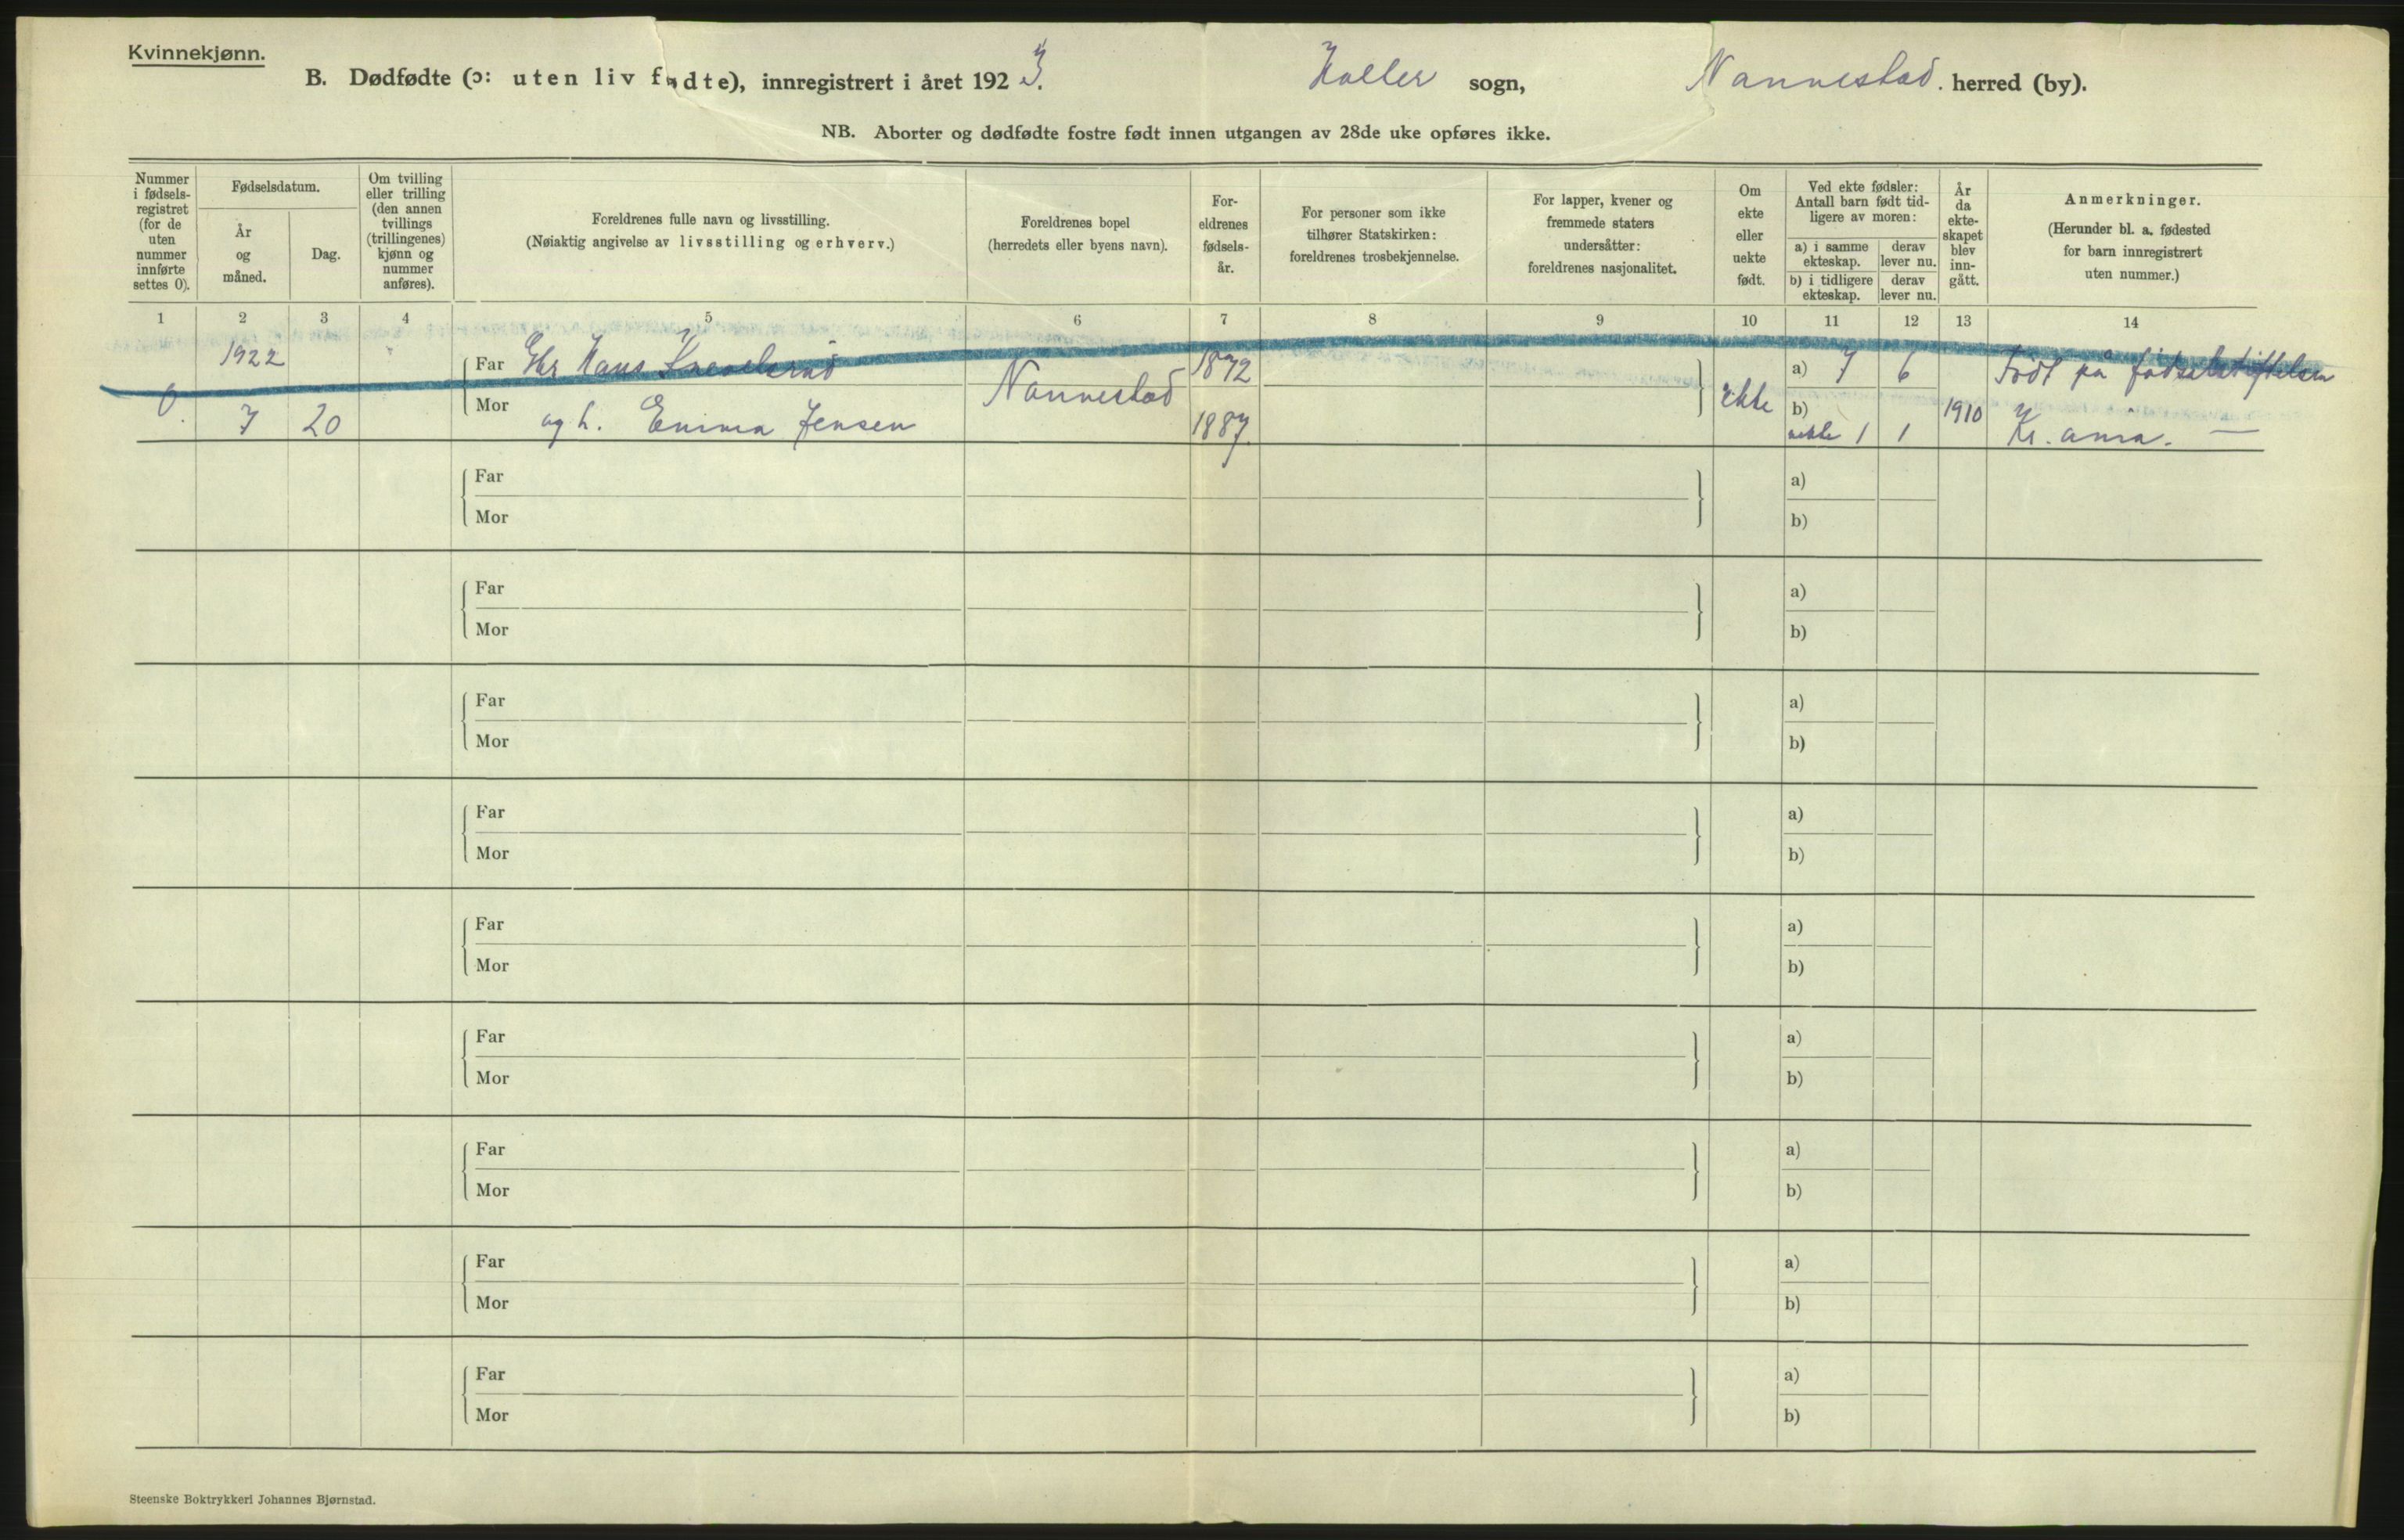 Kvinnekjønn.
B. Dødfødte (ɔ: uten liv fødte), innregistrert i året 1923. Holter sogn, Nannestad. herred (by).
NB. Aborter og dødfødte fostre født innen utgangen av 28de uke opføres ikke.
Nummer i fødsels-registret (for de uten nummer innførte settes 0).
Fødselsdatum.
År og måned.
Dag.
Om tvilling eller trilling (den annen tvillings (trillingenes) kjønn og nummer anføres).
Foreldrenes fulle navn og livsstilling.
(Nøiaktig angivelse av livsstilling og erhverv.)
Foreldrenes bopel
(herredets eller byens navn).
For-eldrenes fødsels-år.
For personer som ikke tilhører Statskirken: foreldrenes trosbekjennelse.
For lapper, kvener og fremmede staters undersåtter: foreldrenes nasjonalitet.
Om ekte eller uekte født.
Ved ekte fødsler: Antall barn født tid-ligere av moren:
a) i samme ekteskap.
derav lever nu.
b) i tidligere ekteskap.
derav lever nu.
År da ekte-skapet blev inn-gått.
Anmerkninger.
(Herunder bl. a. fødested for barn innregistrert uten nummer.)
1 2 3 4 5 6 7 8 9 10 11 12 13 14
1922 Far Gbr Hans 1872 a) 7 6 Født på fødselsstiftelsen
0. 7 20 Mor og h. Emma Jensen Nannestad 1887 ekte b) uekte 1 1 1910 Kr.ania. —
Far a)
Mor b)
Far a)
Mor b)
Far a)
Mor b)
Far a)
Mor b)
Far a)
Mor b)
Far a)
Mor b)
Far a)
Mor b)
Far a)
Mor b)
Far a)
Mor b)
Steenske Boktrykkeri Johannes Bjørnstad.